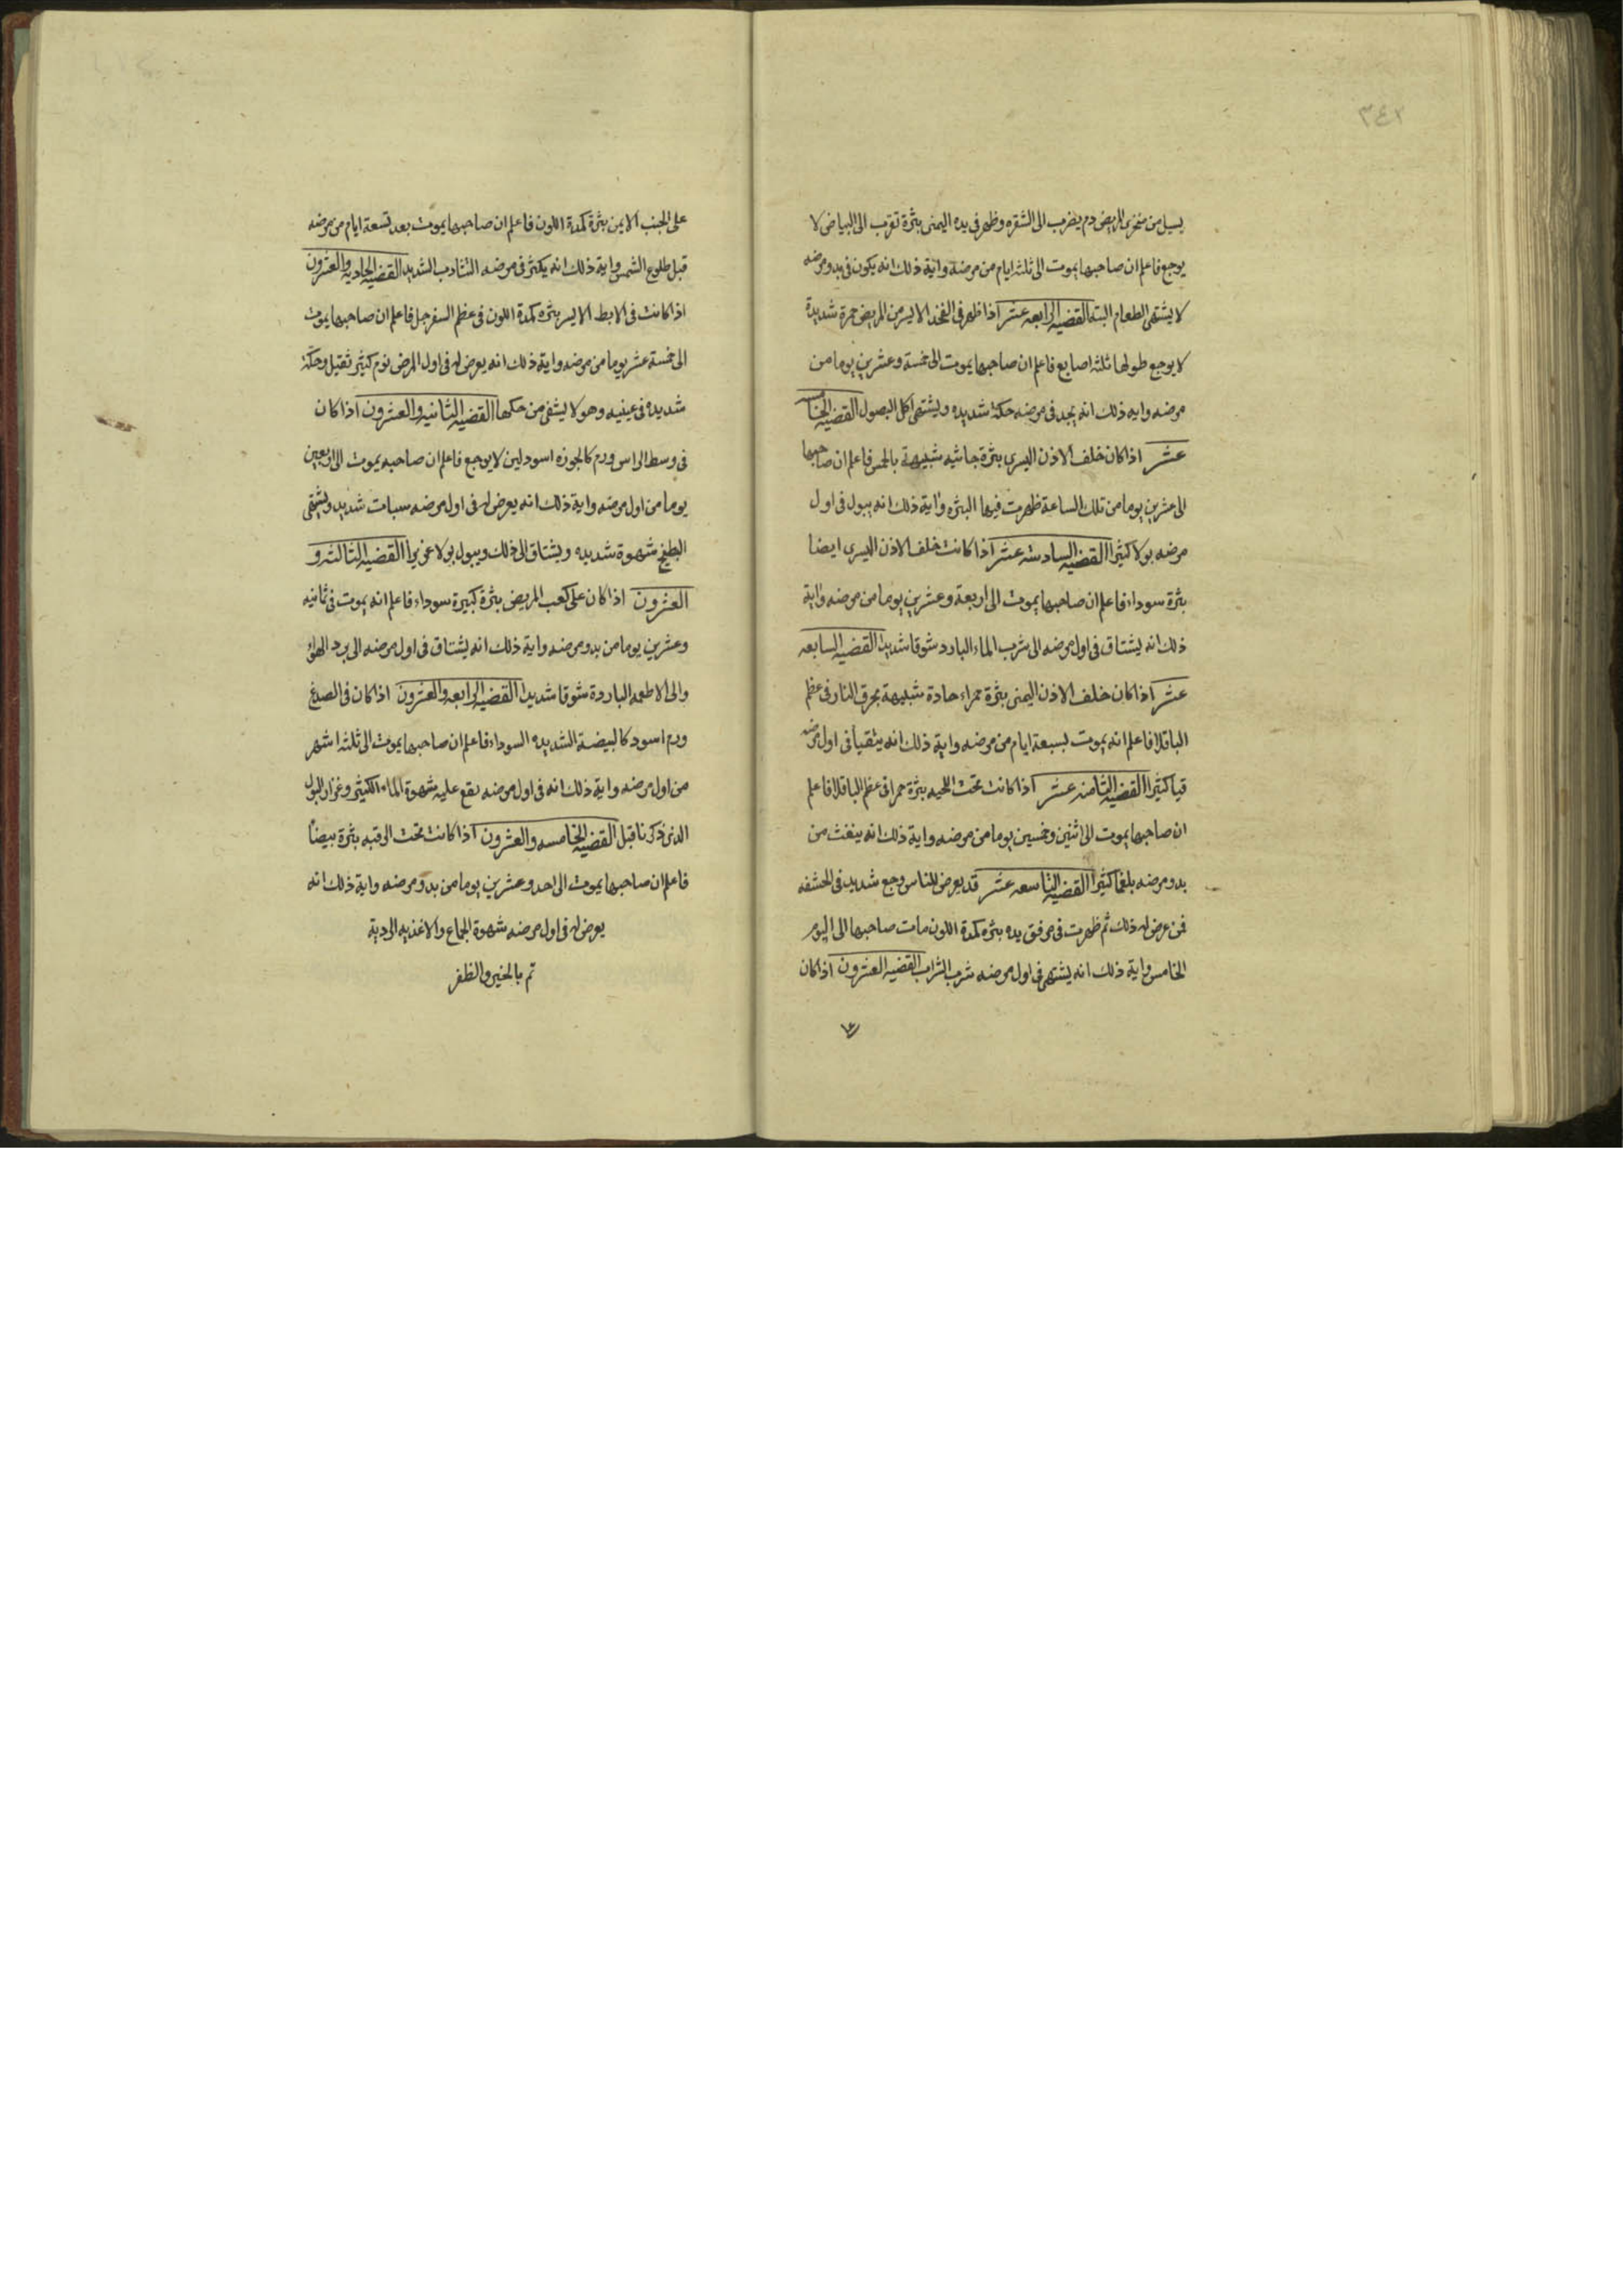 ٣٤٢
يسيل من منخرى المريض دم يضرب الى الشقره وظهر فى يده اليمنى بثرة تقرب الى البياض لا
يوجع فاعلم ان صاحبها يموت الى ثلثه ايام من مرضه واية ذلك انه يكون فى بدو مرضه
لا يشتهى الطعام البته القضيه الرابعه عشر اذا ظهر فى الفخذ الايسر من المريض حمرة شديدة
لا يوجع طولها ثلثه اصابع فاعلم ان صاحبها يموت الى خمسة وعشرين يوما من
مرضه وايه ذلك انه يجد فى مرضه حكة شديده ويشتهى اكل البصول القضيه الخامسه
عشر اذا كان خلف الاذن اليسرى بثرة جاسيه شبيهة بالحمص فاعلم ان صاحبها
الى عشرين يوما من تلك الساعة ظهرت فيها البثره واية ذلك انه يبول فى اول
مرضه بولا كثيرا القضيه السادسته عشر اذا كانت خلف الاذن اليسرى ايضا
بثرة سوداء فاعلم ان صاحبها يموت الى اربعة وعشرين يوما من مرضه واية
ذلك انه يشتاق فى اول مرضه الى شرب الماء البارد شوقا شديدا القضيه السابعه
عشر اذا كان خلف الاذن اليمنى بثرة حمراء حادة شبيهة بحرق النار فى عظم
الباقلا فاعلم انه يموت لسبعة ايام من مرضه واية ذلك انه يتقيا فى اول مرضه
قيا كثيرا القضيه الثامنه عشر اذا كانت تحت اللحيه بثرة حمرا فى عظم الباقلا فاعلم
ان صاحبها يموت الى اثنين وخمسين يوما من مرضه واية ذلك انه ينفث من
بدو مرضه بلغما كثيرا القضيه التاسعه عشر قد يعرض للناس وجع شديد فى الحشفه
فمن عرض له ذلك ثم ظهرت فى مرفق يده بثره كمدة اللون مات صاحبها الى اليوم
الخامس واية ذلك انه يشتهى فى اول مرضه شرب الشراب القضيه العشرون اذا كان
على الجنب الايمن بثرة كمدة اللون فاعلم ان صاحبها يموت بعد تسعة ايام من مرضه
قبل طلوع الشمس واية ذلك انه يكثر فى مرضه التثاوب الشديد القضيه الحاديه والعشرون
اذا كانت فى الابط الايسر بثره كمدة اللون فى عظم السفرجل فاعلم ان صاحبها يموت
الى خمسة عشر يوما من مرضه واية ذلك انه يعرض له فى اول المرض نوم كثير ثقيل وحكة
شديده فى عينيه وهو لا يشفى من حكها القضيه الثانيه والعشرون اذا كان
فى وسط الراس ورم كالجوزه اسود لين لا يوجع فاعلم ان صاحبه يموت الى اربعين
يوما من اول مرضه واية ذلك انه يعرض له فى اول مرضه سبات شديد ويشتهى
البطيخ شهوة شديده ويشتاق الى ذلك ويبول بولا غزيرا القضيه الثالثه و
العشرون اذا كان على كعب المريض بثرة كبيرة سوداء فاعلم انه يموت فى ثمانيه
وعشرين يوما من بدو مرضه واية ذلك انه يشتاق فى اول مرضه الى برد الهواء
والى الاطعمه الباردة شوقا شديدا القضيه الرابعه والعشرون اذا كان فى الصدغ
ورم اسود كالبيضة الشديده السوداء فاعلم ان صاحبها يموت الى ثلثه اشهر
من اول مرضه واية ذلك انه فى اول مرضه يقع عليه شهوة الماء الكثير وغزار البول
الذى ذكرنا قبل القضيه الخامسه والعشرون اذا كانت تحت الرقبه بثرة بيضاً
فاعلم ان صاحبها يموت الى احد وعشرين يوما من بدو مرضه واية ذلك انه
يعرض له فى اول مرضه شهوة الجماع والاغذيه الردية
تم بالخير والظفر